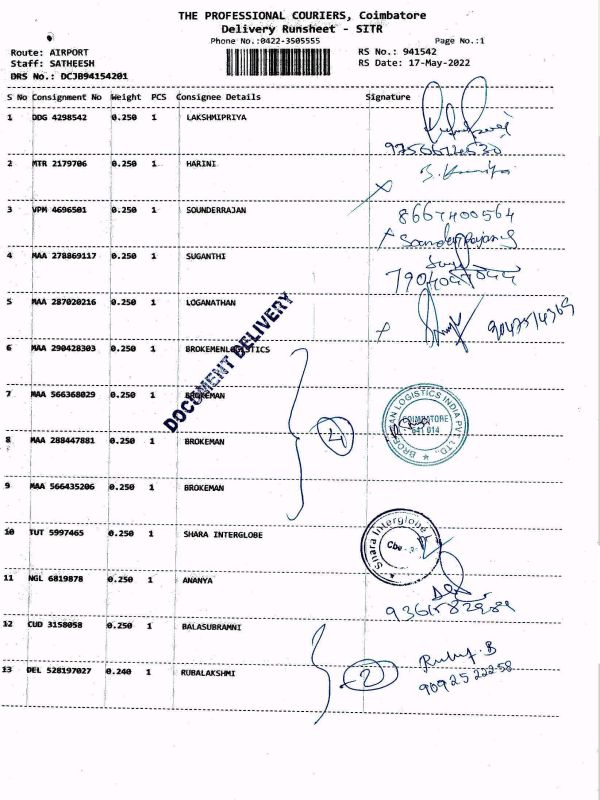 THE PROFESSIONAL COURIERS, Coimbatore
Delivery Runsheet - SITR
Phone No.:0422-3505555 Page No.:1
Route: AIRPORT RS No.: 941542
Staff: SATHEESH RS Date: 17-May-2022
DRS No.: DCJB94154201
S No Consignment No Weight PCS Consignee Details Signature
1 DDG 4298542 0.250 1 LAKSHMIPRIYA
2 MTR 2179706 0.250 1 HARINI
3 VPM 4696501 0.250 1 SOUNDERRAJAN 8667400564
4 MAA 278869117 0.250 1 SUGANTHI
5 MAA 287020216 0.250 1 LOGANATHAN
6 MAA 290428303 0.250 1 BROKEMENLOGISTICS
DOCUMENT DELIVERY
7 MAA 566368029 0.250 1 BROKEMAN
8 MAA 288447881 0.250 1 BROKEMAN
4
LOGISTICS INDIA PVT. LTD.,
COIMBATORE
641 014
9 MAA 566435206 0.250 1 BROKEMAN
10 TUT 5997465 0.250 1 SHARA INTERGLOBE
Shara Interglobe
Cbe
11 NGL 6819878 0.250 1 ANANYA
12 CUD 3158058 0.250 1 BALASUBRAMNI
13 DEL 528197027 0.240 1 RUBALAKSHMI
2
Ruby. B
9092522258